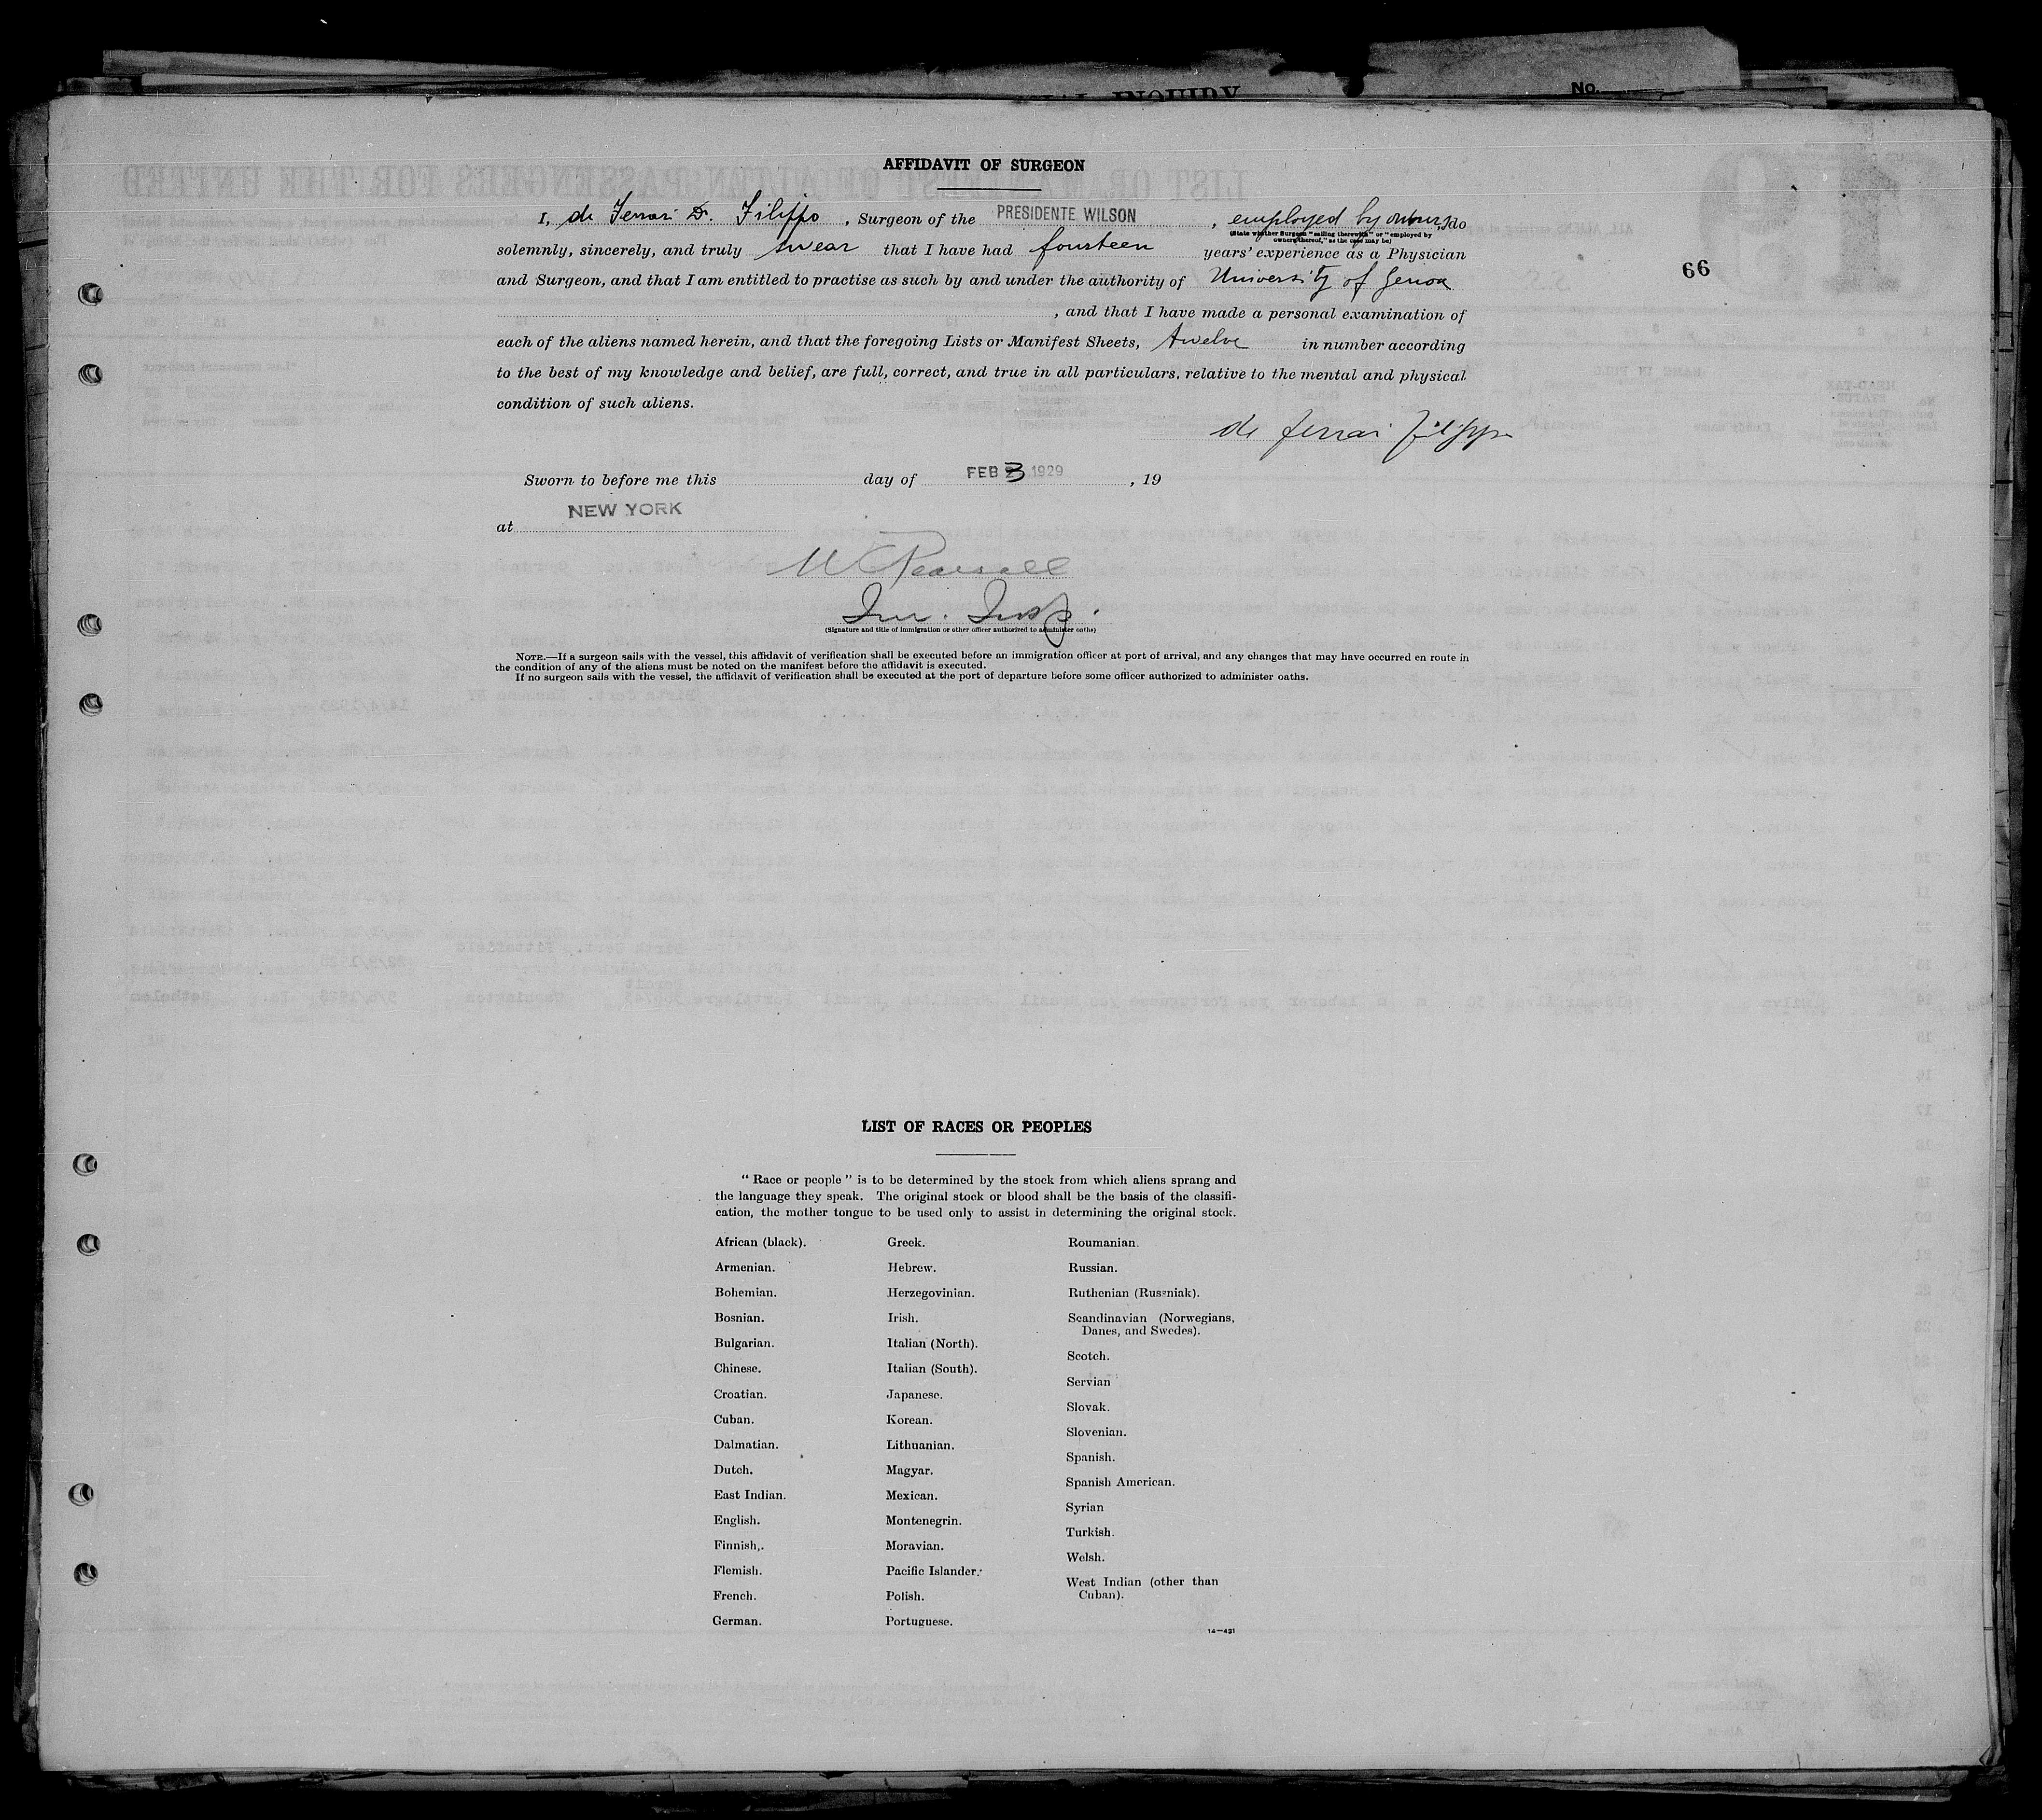 No.
AFFIDAVIT OF SURGEON
I, de Ferrari Dr. Filippo, Surgeon of the PRESIDENTE WILSON, employed by owners, do
(State whether Surgeon "sailing therewith" or "employed by owners thereof," as the case may be)
solemnly, sincerely, and truly swear that I have had fourteen years' experience as a Physician
and Surgeon, and that I am entitled to practise as such by and under the authority of University of Genoa
66
, and that I have made a personal examination of
each of the aliens named herein, and that the foregoing Lists or Manifest Sheets, twelve in number according
to the best of my knowledge and belief, are full, correct, and true in all particulars, relative to the mental and physical
condition of such aliens.
de Ferrari Filippo
Sworn to before me this day of FEB 3 1929, 19
at NEW YORK
Imm. Insp.
(Signature and title of immigration or other officer authorized to administer oaths)
NOTE.—If a surgeon sails with the vessel, this affidavit of verification shall be executed before an immigration officer at port of arrival, and any changes that may have occurred en route in
the condition of any of the aliens must be noted on the manifest before the affidavit is executed.
If no surgeon sails with the vessel, the affidavit of verification shall be executed at the port of departure before some officer authorized to administer oaths.
LIST OF RACES OR PEOPLES
"Race or people" is to be determined by the stock from which aliens sprang and
the language they speak. The original stock or blood shall be the basis of the classifi-
cation, the mother tongue to be used only to assist in determining the original stock.
African (black).
Armenian.
Bohemian.
Bosnian.
Bulgarian.
Chinese.
Croatian.
Cuban.
Dalmatian.
Dutch.
East Indian.
English.
Finnish.
Flemish.
French.
German.
Greek.
Hebrew.
Herzegovinian.
Irish.
Italian (North).
Italian (South).
Japanese.
Korean.
Lithuanian.
Magyar.
Mexican.
Montenegrin.
Moravian.
Pacific Islander.
Polish.
Portuguese.
Roumanian.
Russian.
Ruthenian (Russniak).
Scandinavian (Norwegians,
Danes, and Swedes).
Scotch.
Servian
Slovak.
Slovenian.
Spanish.
Spanish American.
Syrian
Turkish.
Welsh.
West Indian (other than
Cuban).
14—431